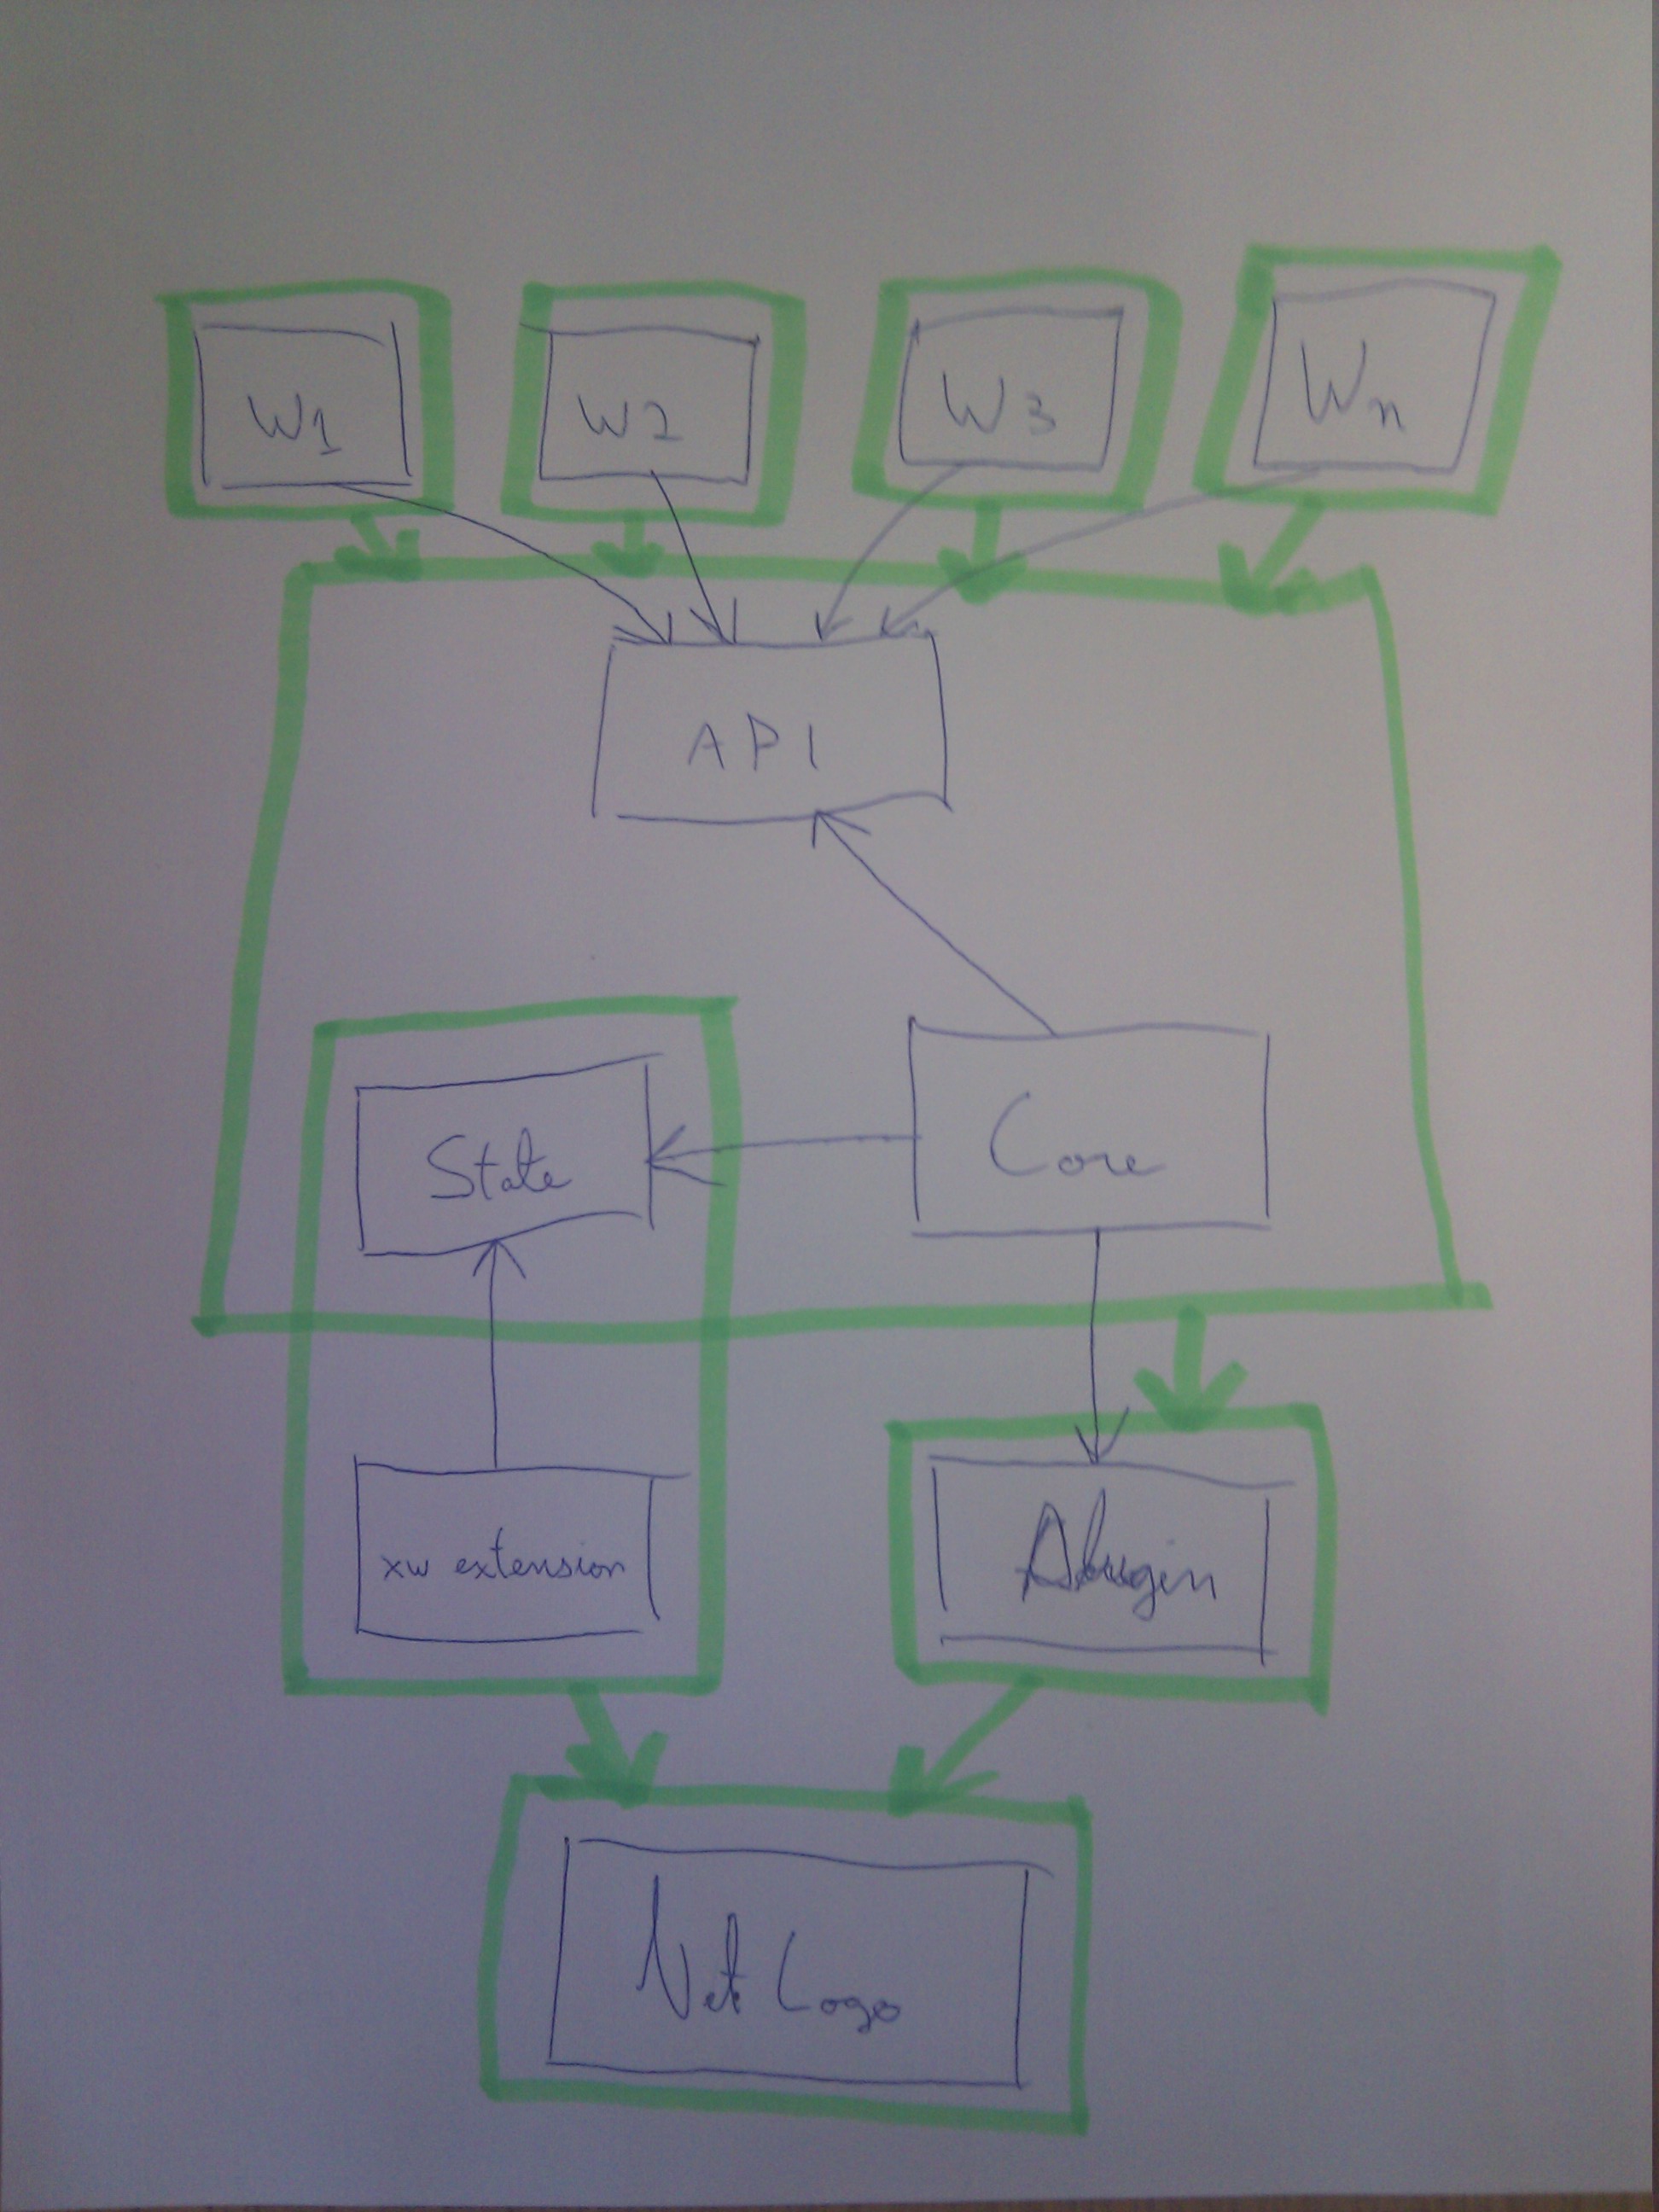 W1
W2
W3
Wn
API
State
Core
xw extension
Plugin
NetLogo